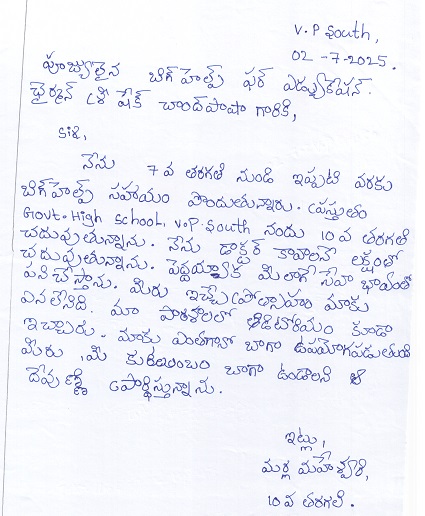 V.P South,
02-7-2025.
పూజ్యులైన బిగ్ హెల్ప్ ఫర్ ఎడ్యుకేషన్.
ఛైర్మన్ శ్రీ షేక్ చాంద్‌పాషా గారికి,
Sir,
నేను 7వ తరగతి నుండి ఇప్పటి వరకు
బిగ్‌హెల్ప్ సహాయం పొందుతున్నారు. ప్రస్తుతం
Govt. High school, V.P. South నందు 10వ తరగతి
చదువుతున్నాను. నేను డాక్టర్ కావాలనే లక్ష్యంతో
చదువుతున్నాను. పెద్దయ్యాక మీలాగే సేవా భావంతో
పనిచేస్తాను. మీరు ఇచ్చే ప్రోత్సాహం మాకు
ఎనలేనిది. మా పాఠశాలలో ఆడిటోరియం కూడా
ఇచ్చారు. మాకు ఎంతగానో బాగా ఉపయోగపడుతుంది
మీరు, మీ కుటుంబం బాగా ఉండాలని
దేవుణ్ణి ప్రార్థిస్తున్నాను.
ఇట్లు,
మర్ల మహేశ్వరి,
10వ తరగతి.